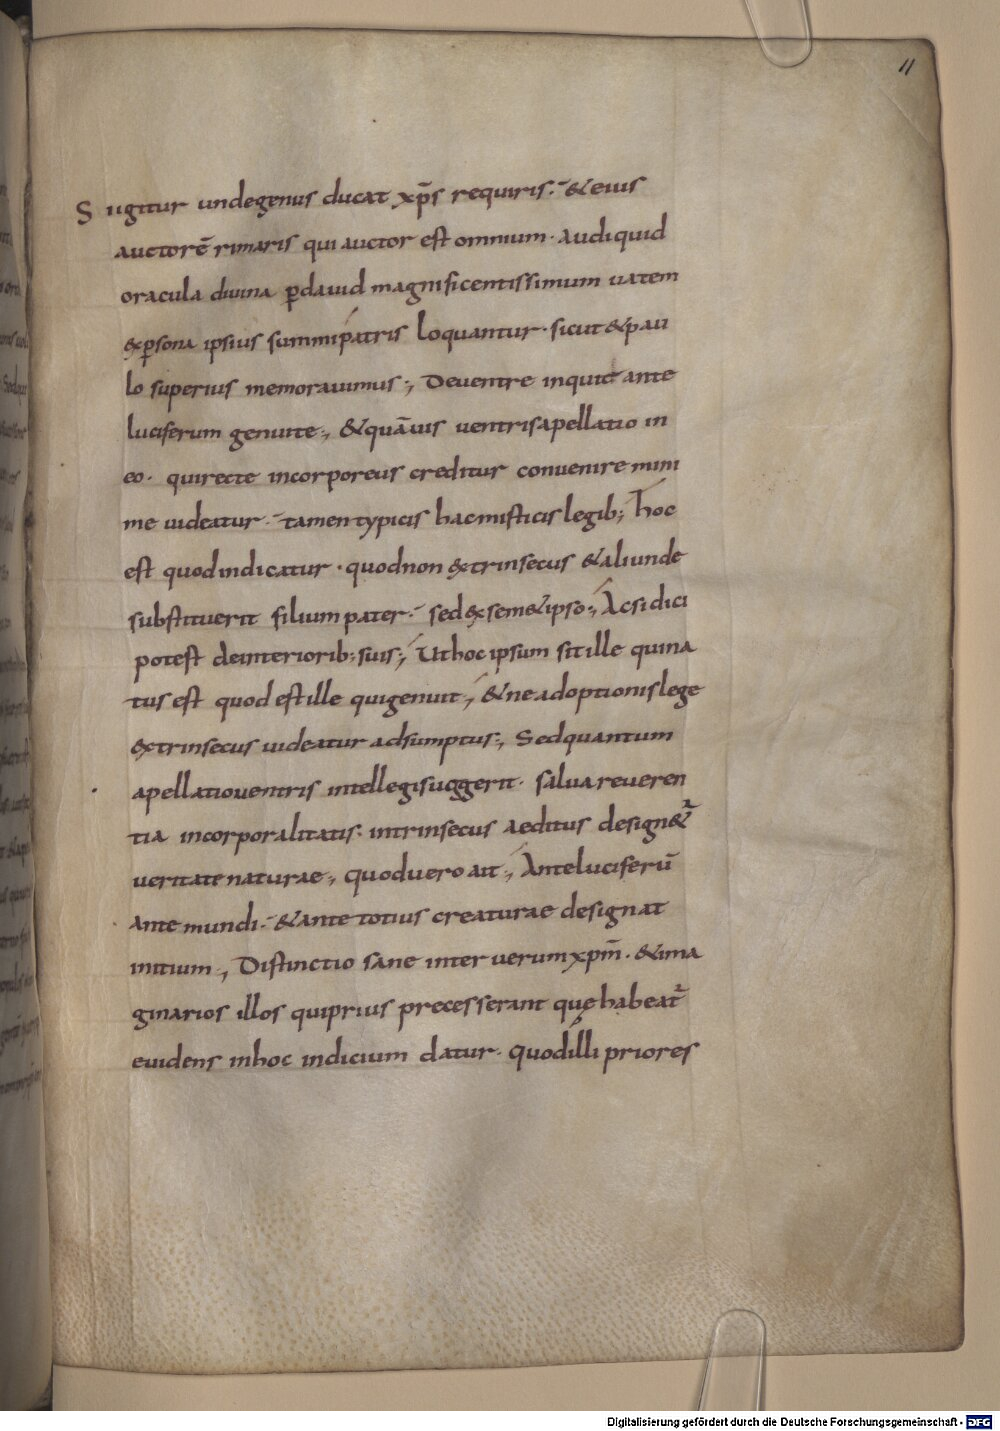 11
S iigitur undegenus ducat xp̄s requiris· & eius
auctorē rimaris qui auctor est omnium· audi quid
oracula diuina ꝑ dauid magnificentissimum uatem
ex ꝑsona ipsius summi patris loquantur· sicut & pau
lo superius memorauimus·, De uentre inquit ante
luciferum genui te·, & quāuis uentris apellatio in
eo· qui recte incorporeus creditur conuenire mini
me uideatur· tamen typicis hac misticis legib; hoc
est quod indicatur· quod non extrinsecus & aliunde
substituerit filium pater· sed ex semet ipso·, Ac si dici
potest de interiorib; suis·, Ut hoc ipsum sit ille qui na
tus est quod est ille qui genuit·, & ne adoptionis lege
extrinsecus uideatur adsumptus·, Sed quantum
apellatio uentris intellegi suggerit· salua reueren
tia incorporalitatis· intrinsecus aeditus design&ur
ueritate naturae·, quod uero ait·, Ante luciferū
ante mundi· & ante totius creaturae designat
initium·, Distinctio sane inter uerum xpm̄· & ima
ginarios illos qui prius precesserant quę habeat̉
euidens in hoc indicium datur· quod illi priores
Digitalisierung gefördert durch die Deutsche Forschungsgemeinschaft - DFG